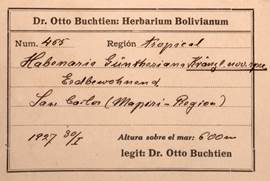 Dr. Otto Buchtien: Herbarium Bolivianum
Num. 455 Región tropical
Habenaria Güntheriana Kränzl. nov. spec.
Erdbewohnend
San Carlos (Mapiri-Region)
1927 30/I Altura sobre el mar: 600 m
legit: Dr. Otto Buchtien